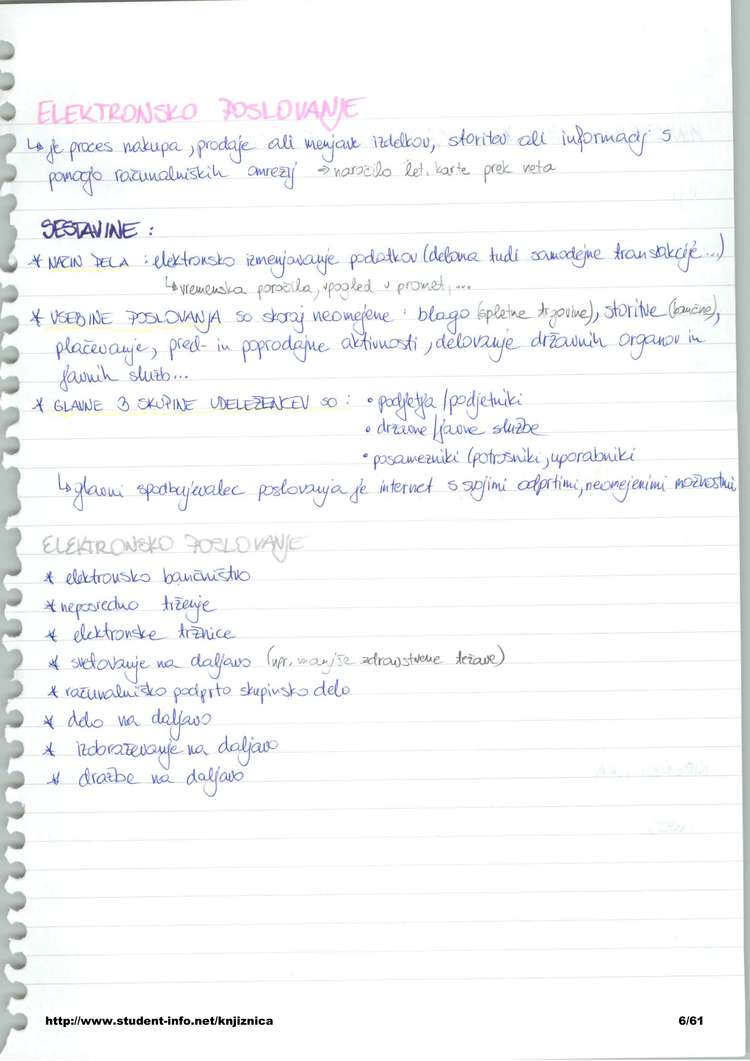 ELEKTRONSKO POSLOVANJE
↳ je proces nakupa, prodaje ali menjave izdelkov, storitev ali informacij s
pomočjo računalniških omrežij → naročilo let. karte prek neta
SESTAVINE :
* NAČIN DELA : elektronsko izmenjavanje podatkov (deloma tudi samodejne transakcije ...)
↳ vremenska poročila, vpogled v promet, ...
* VSEBINE POSLOVANJA so skoraj neomejene : blago (spletne trgovine), storitve (bančne),
plačevanje, pred- in poprodajne aktivnosti, delovanje državnih organov in
javnih služb...
* GLAVNE 3 SKUPINE UDELEŽENCEV SO : • podjetja / podjetniki
• državne / javne službe
• posamezniki (potrošniki, uporabniki
↳ glavni spodbujevalec poslovanja je internet s svojimi odprtimi, neomejenimi možnostmi
ELEKTRONSKO POSLOVANJE
* elektronsko bančništvo
* neposredno trženje
* elektronske tržnice
* svetovanje na daljavo (npr. manjše zdravstvene težave)
* računalniško podprto skupinsko delo
* delo na daljavo
* izobraževanje na daljavo
* dražbe na daljavo
http://www.student-info.net/knjiznica 6/61